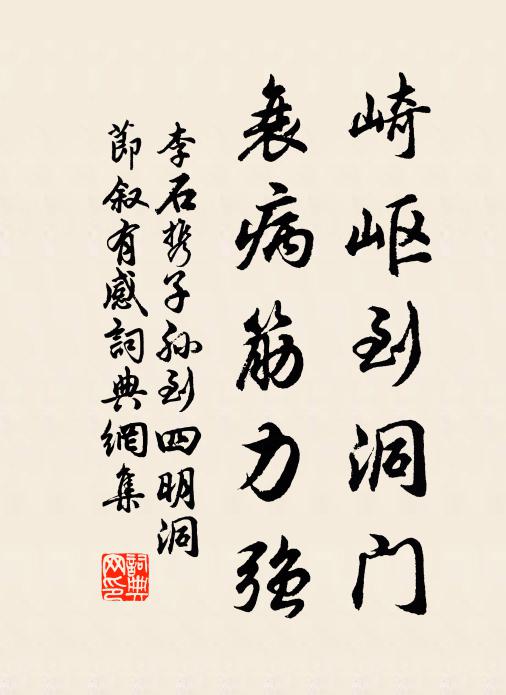 崎岖到洞门
衰病筋力強
李石携子孙到四明洞
節叙有感詞典網集
詞典网印